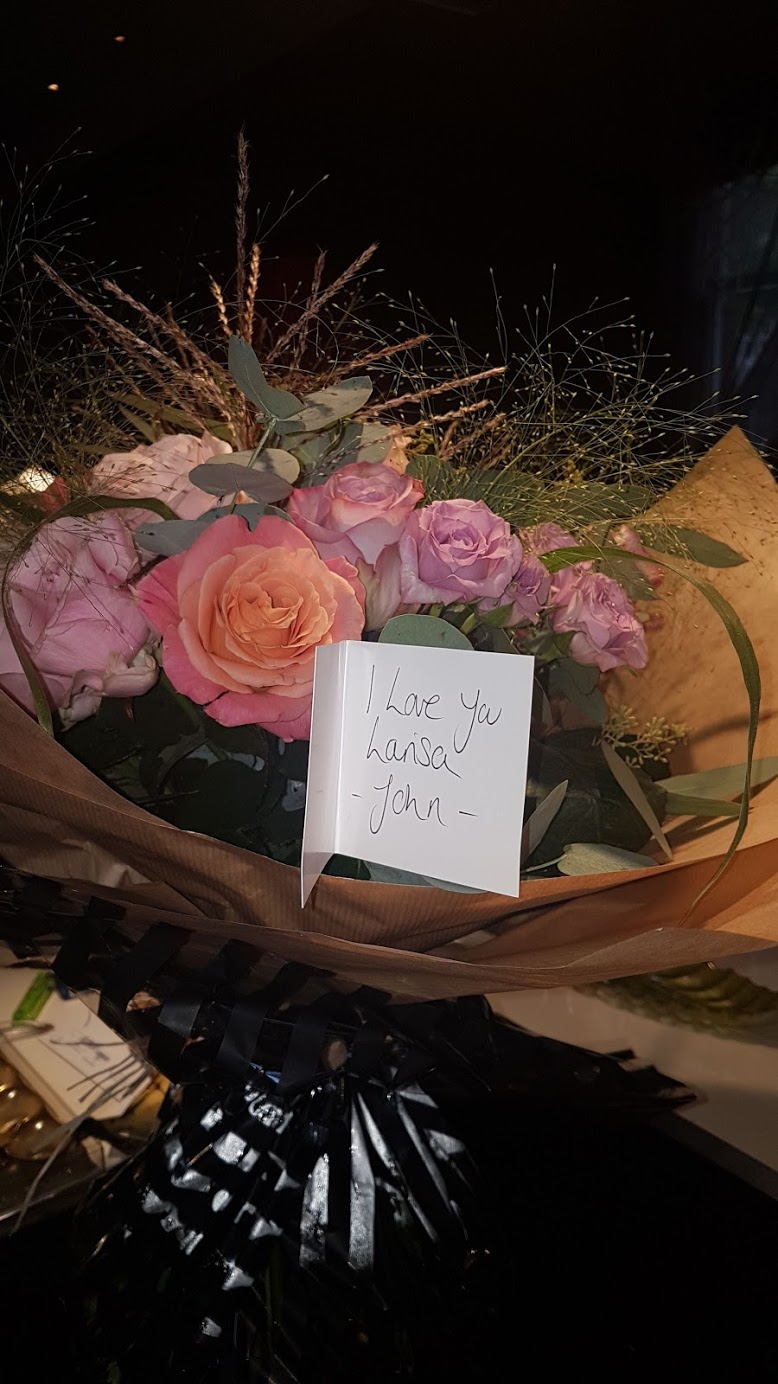 I Love You
Larisa
- John -